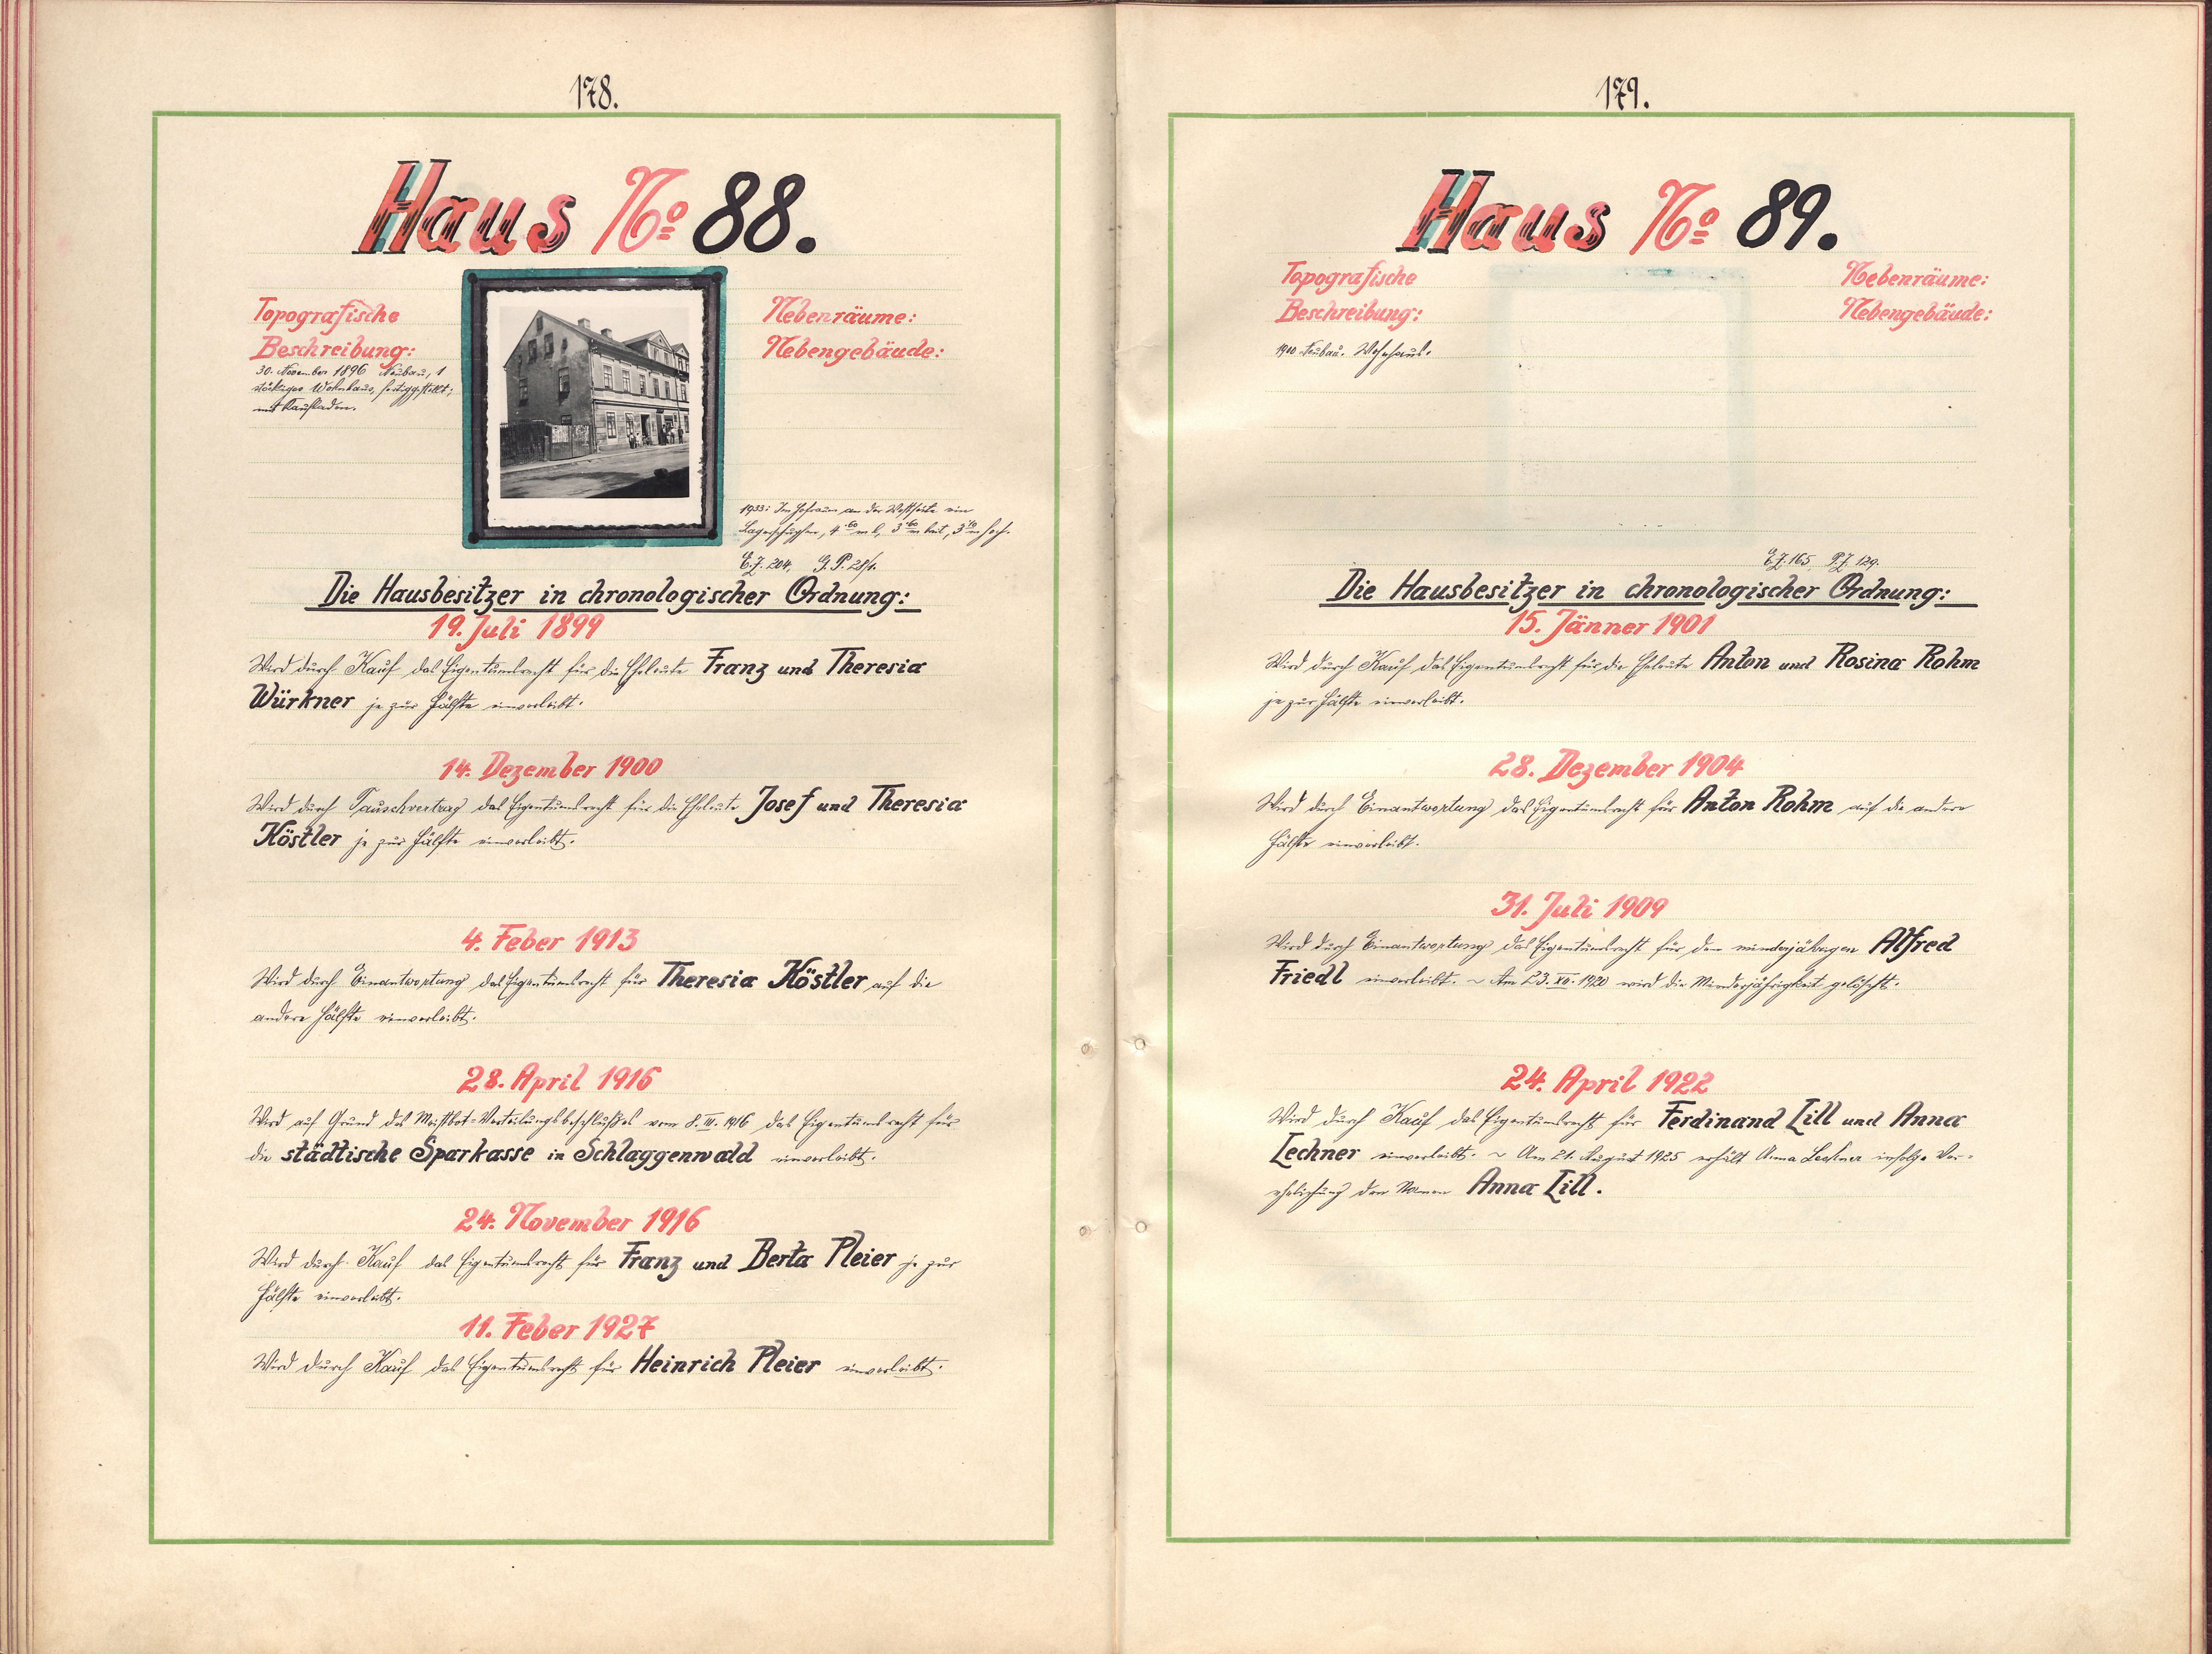 178.
Haus No 88.
Topografische
Beschreibung:
30. November 1896 Neubau, 1
stöckiges Wohnhaus, fertiggestellt;
mit Kaufladen.
Nebenräume:
Nebengebäude:
1933: Im Hofraum an der Westseite ein
Lagerschupfen, 4.60 m l., 3.60 m breit, 3.10 m hoch.
E.Z. 204. G.P. 28/1.
Die Hausbesitzer in chronologischer Ordnung:
19. Juli 1899
Wird durch Kauf das Eigentumsrecht für die Eheleute Franz und Theresia
Würkner je zur Hälfte einverleibt.
14. Dezember 1900
Wird durch Tauschvertrag das Eigentumsrecht für die Eheleute Josef und Theresia
Köstler je zur Hälfte einverleibt.
4. Feber 1913
Wird durch Einantwortung das Eigentumsrecht für Theresia Köstler auf die
andere Hälfte einverleibt.
28. April 1916
Wird auf Grund des Meistbot-Verteilungsbeschlußes vom 8. III. 1916 das Eigentumsrecht für
die städtische Sparkasse in Schlaggenwald einverleibt.
24. November 1916
Wird durch Kauf das Eigentumsrecht für Franz und Berta Pleier je zur
Hälfte einverleibt.
11. Feber 1927
Wird durch Kauf das Eigentumsrecht für Heinrich Pleier einverleibt.
179.
Haus No 89.
Topografische
Beschreibung:
1900 Neubau. Wohnhaus.
Nebenräume:
Nebengebäude:
E.Z. 165 P.Z. 129.
Die Hausbesitzer in chronologischer Ordnung:
15. Jänner 1901
Wird durch Kauf das Eigentumsrecht für die Eheleute Anton und Rosina Rohm
je zur Hälfte einverleibt.
28. Dezember 1904
Wird durch Einantwortung das Eigentumsrecht für Anton Rohm auf die andere
Hälfte einverleibt.
31. Juli 1909
Wird durch Einantwortung das Eigentumsrecht für den minderjährigen Alfred
Friedl einverleibt. ~ Am 23. XII. 1920 wird die Minderjährigkeit gelöscht.
24. April 1922
Wird durch Kauf das Eigentumsrecht für Ferdinand Lill und Anna
Lechner einverleibt. ~ Am 21. August 1925 erhält Anna Lechner infolge Ver-
ehelichung den Namen Anna Lill.